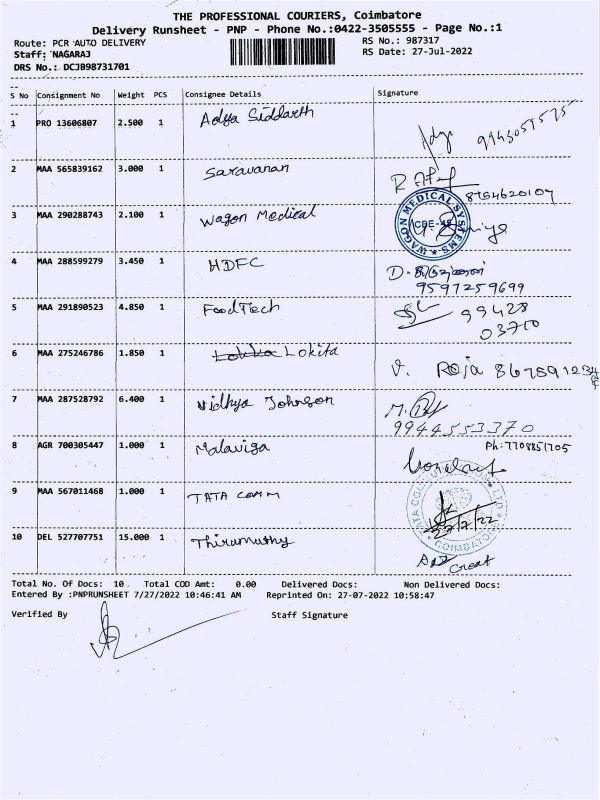 THE PROFESSIONAL COURIERS, Coimbatore
Delivery Runsheet - PNP - Phone No.:0422-3505555 - Page No.:1
Route: PCR AUTO DELIVERY RS No.: 987317
Staff: NAGARAJ RS Date: 27-Jul-2022
DRS No.: DCJB98731701
S No Consignment No Weight PCS Consignee Details Signature
1 PRO 13606807 2.500 1 Adya Siddarth
2 MAA 565839162 3.000 1 Saravanan 8754620107
3 MAA 290288743 2.100 1 Wagon Medical WAGON MEDICAL SYSTEMS CBE-45
4 MAA 288599279 3.450 1 HDFC D.
9597259699
5 MAA 291890523 4.850 1 FoodTech 99428
03710
6 MAA 275246786 1.850 1 Lokita V. Roja
7 MAA 287528792 6.400 1 Vidhya Johnson M.
9944553370
8 AGR 700305447 1.000 1 Malaviga Ph:7708851705
9 MAA 567011468 1.000 1 TATA COMM
27/7/22
10 DEL 527707751 15.000 1 Thirumuthy
Total No. Of Docs: 10 Total COD Amt: 0.00 Delivered Docs: Non Delivered Docs:
Entered By :PNPRUNSHEET 7/27/2022 10:46:41 AM Reprinted On: 27-07-2022 10:58:47
Verified By Staff Signature